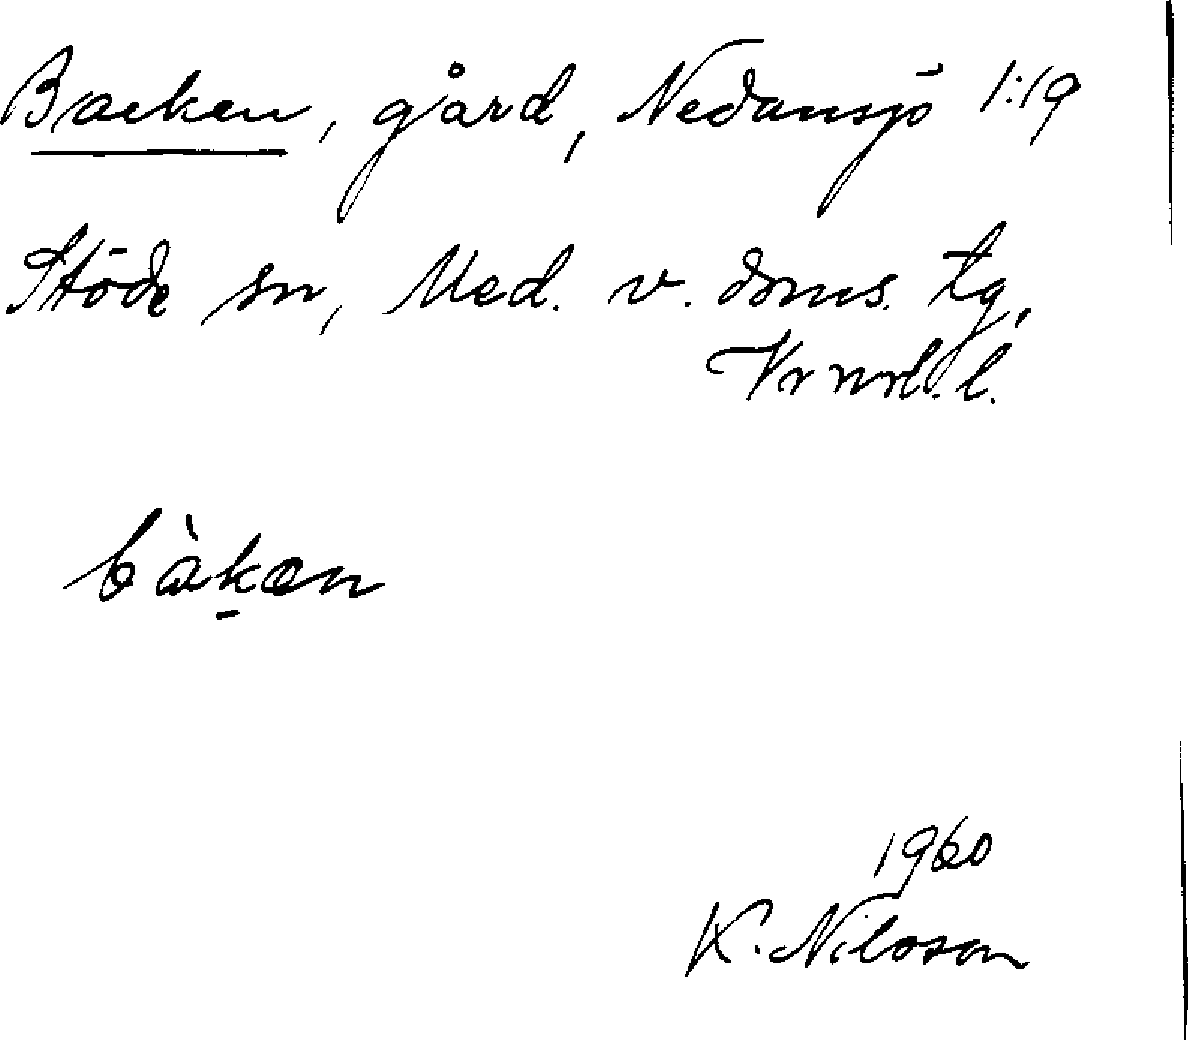 Backen, gård, Nedansjö 1:19
Stöde sn, Med. v. doms. tg,
Vrnrl. l.
bàk̠en
1960
K. Nilsson